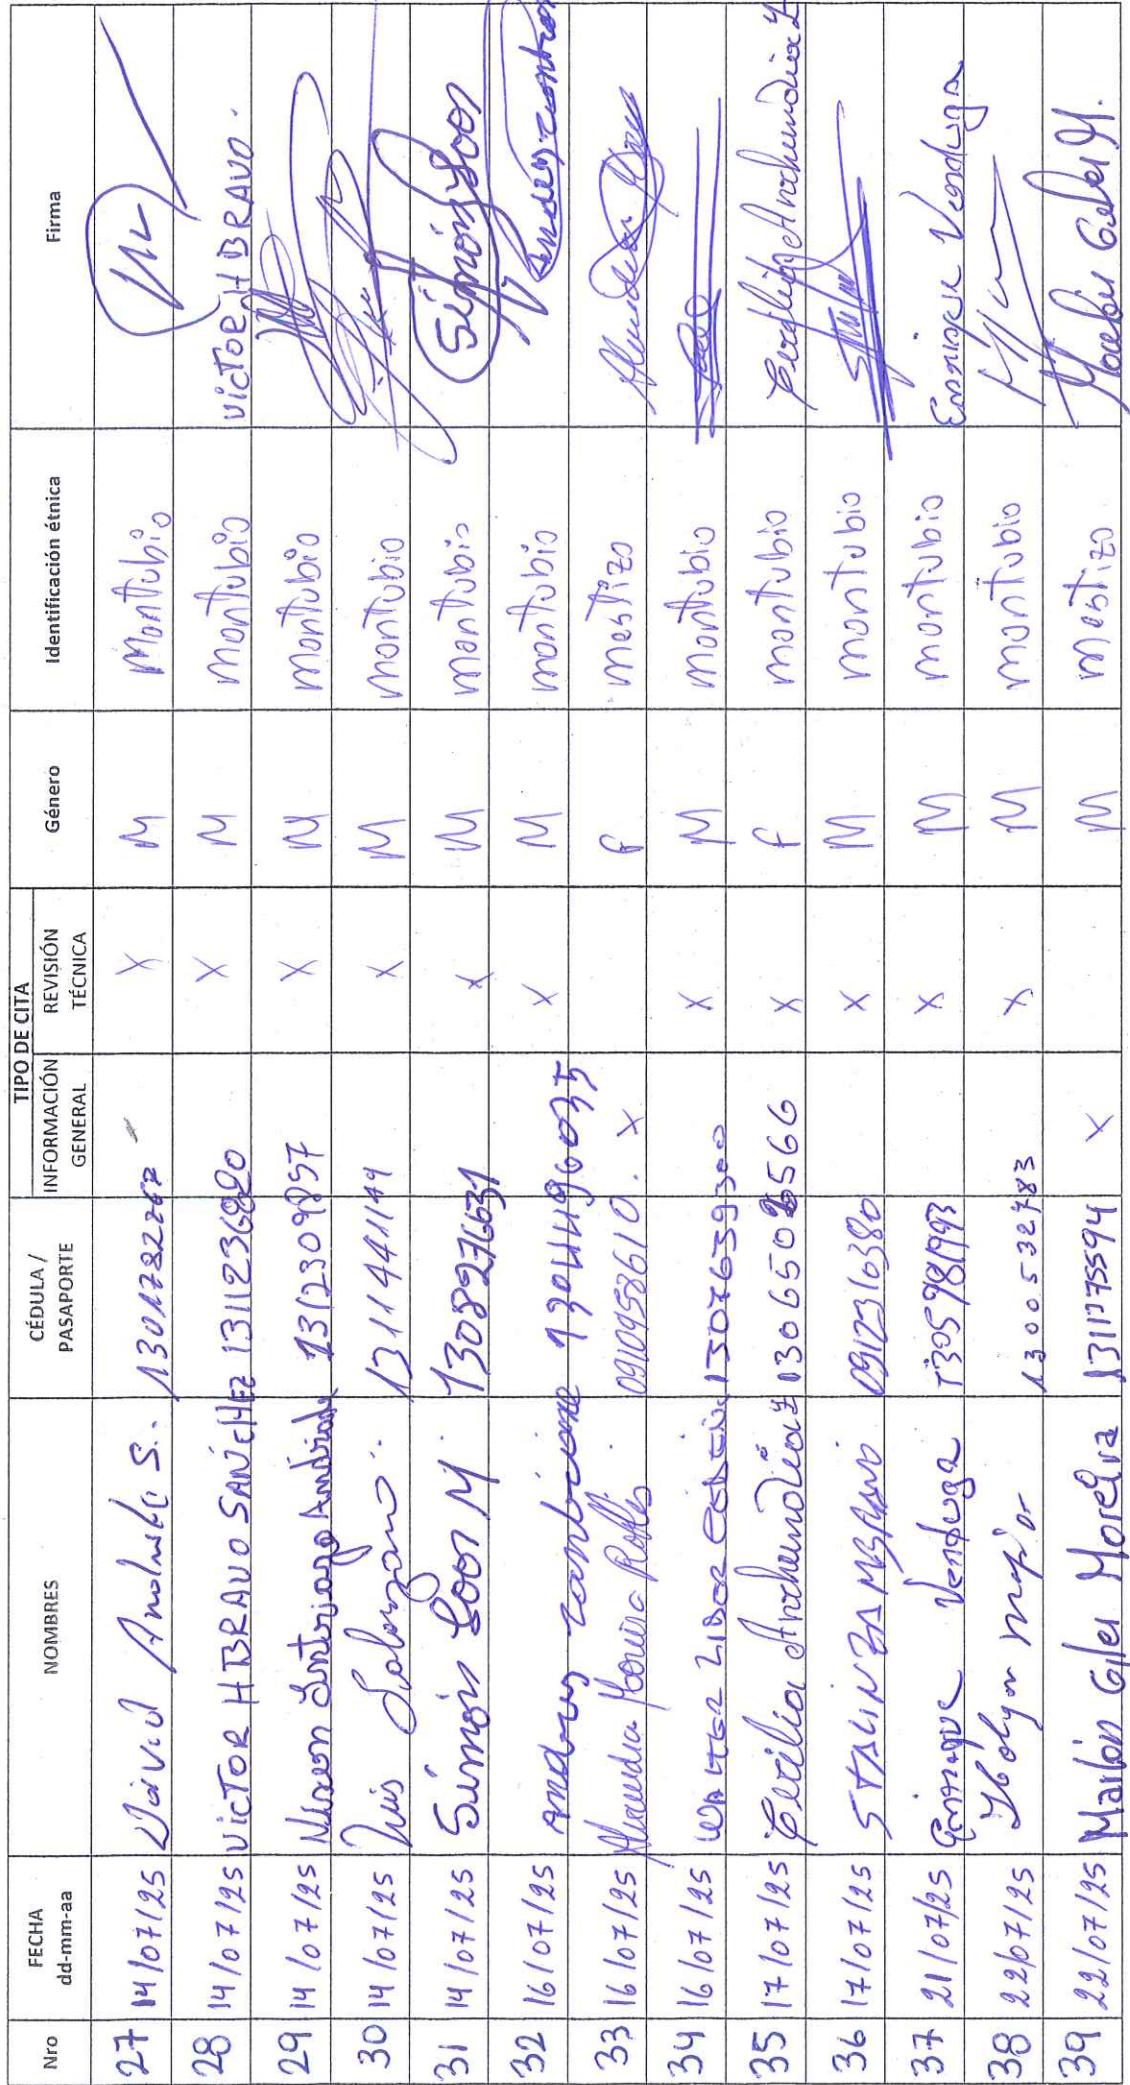 Nro FECHA dd-mm-aa NOMBRES CÉDULA / PASAPORTE TIPO DE CITA INFORMACIÓN GENERAL REVISIÓN TÉCNICA Género Identificación étnica Firma
27 14/07/25 David S. X M Montubio
28 14/07/25 VICTOR H BRAVO SANCHEZ 1311236820 X M Montubio VICTOR H BRAVO.
29 14/07/25 1312309857 X M Montubio
30 14/07/25 Luis Solorzano 1311441149 X M montubio
31 14/07/25 Simón Loor M 1308276631 X M montubio Simón Loor
32 16/07/25 Andres X M montubio
33 16/07/25 Robles 0910958610. X F mestizo
34 16/07/25 WALTER 1307639300 X M montubio
35 17/07/25 Cecilia Anchundia Z X F montubio Cecilia Anchundia Z
36 17/07/25 STALIN ZAMBRANO 0912316380 X M montubio
37 21/07/25 Enrique Verduga X M montubio Enrique Verduga
38 22/07/25 1300532783 X M montubio
39 22/07/25 Marlon Giler Moreira 1311775594 X M mestizo Marlon Giler M.